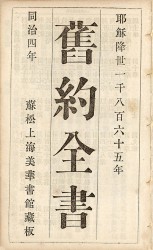 耶穌降世一千八百六十五年
舊約全書
同治四年
蘇松上海美華書館藏板